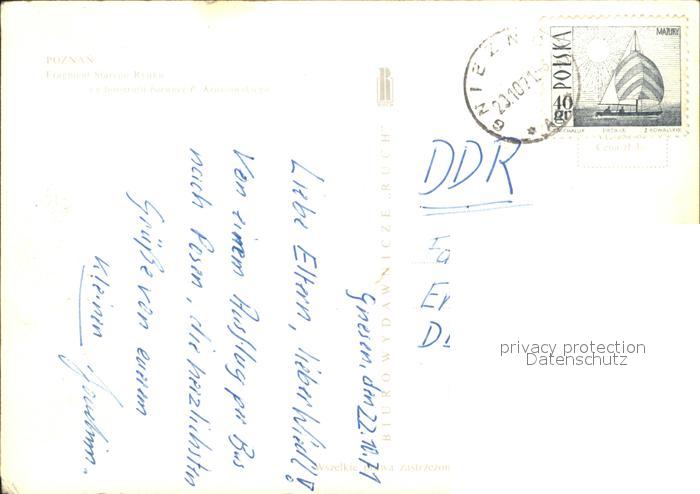 POZNAŃ
Fragment Starego Rynku
BIURO WYDAWNICZE „RUCH"
Wszelkie prawa zastrzeżon
GNIEZNO
22.10.71
MAZURY
POLSKA
40 GR
Cena zł
Gnesen, den 22.10.71
Liebe Eltern, lieber Wiedl!
Von einem Ausflug per Bus
nach Posen, die herzlichsten
Grüße von eurem
kleinen Joachim.
DDR
Fa
Er
privacy protection
Datenschutz